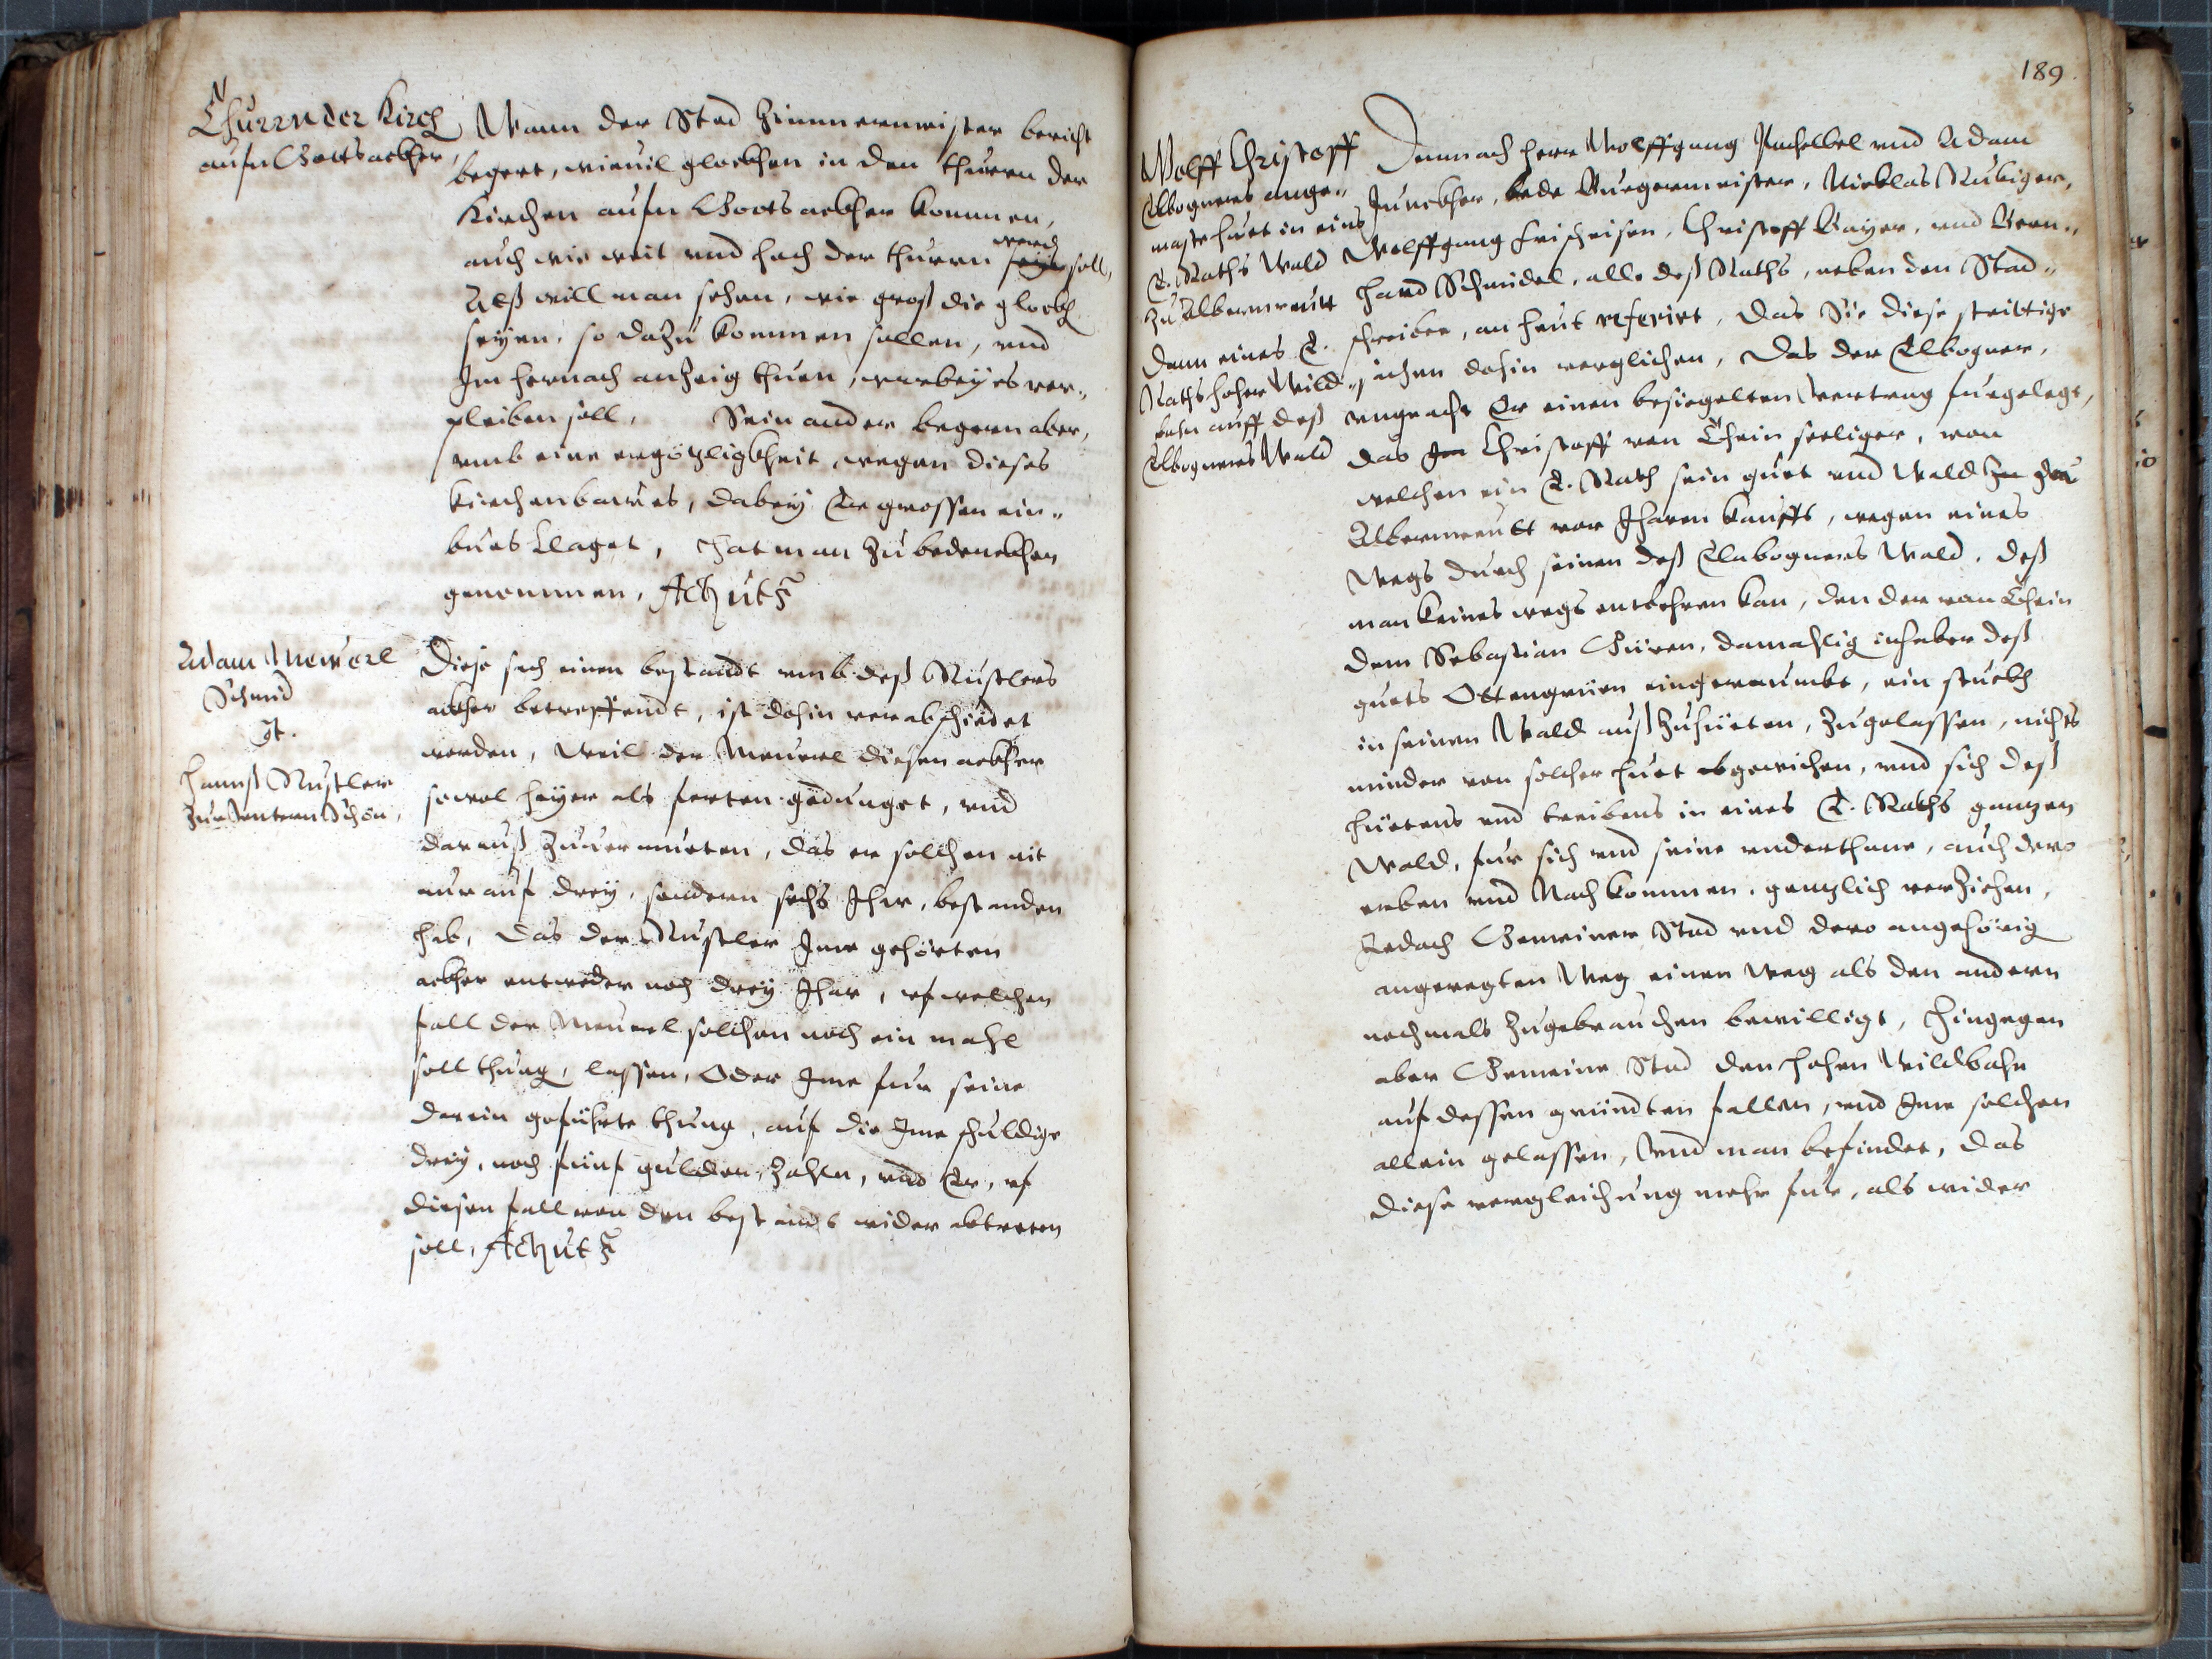 Thurrn der Kirch
aufn Gottsackher,
Wann der Stad Zimmermeister bericht
begert, wieuil glockhen in den thurrn der
Kirchen aufn Gottsackher kommen,
auch wie weit vnd hoch der thurrn werd soll,
Alß will man sehen, wie groß die glockh
seyen, so dazu kommen sollen, vnd
Im hernach anzeig thuen, warbey es ver„
pleiben soll, Sein ander begern aber,
vmb eine ergötzligkheit wegen dieses
Kirchenbawes, dabey Er grossen ein„
bues klaget, hat man zu bedenckhen
genommen, Act ut
Adam Meurl
Schmid
Hannß Rustler
Diese sach einen bestandt vmb deß Rustlers
ackher betreffendt, ist dahin verabschiedet
worden, Weil der Meurel diesen ackher
sowol heyer als ferten gedunget, vnd
darauß zuuermueten, das er solchen nit
nur auf drey, sondern sechs Jhar, bestanden
hab, Das der Rustler Ime gehörten
ackher entweder noch drey Jhar, vf welchen
fall der Meurel solchen noch ein mahl
soll thung, lassen, Oder Ime fur seine
darein gefuhrte thung, auf die Ime schuldige
drey, noch funf gulden, zahln, vnd Er, vf
diesen fall von den bestands wider abtretten
soll, Act ut
189.
Wolff Christoff
Elbogners ange„
maste huet in eins
E. Raths Wald
zu Albernreutt
Dann eines E.
Raths hoher Wild„
bahn auff deß
Elbogners Wald
Demnach herr Wolffgang Pachelbel vnd Adam
Junckher, bede Burgermeister, Nicklas Rubiger,
Wolffgang Frischeisen, Christoff Bayer, vnd Bern„
hard Schmidel, alle deß Raths, neben den Stad„
schreiber, an heut referirt, Das Sie diese strittige
sachen dahin verglichen, Das der Elbogner,
vngeacht Er einen besiegelten Vertrag furgelegt,
das Christoff von Thein seeliger, von
welchen ein E. Rath sein guet vnd Wald zu
Albernreutt vor Jharen kaufft, wegen eines
Wegs durch seinen deß Elnbogners Wald, deß
man keines wegs entbehren kan, den der von Thein
dem Sebastian Güren, damahlig inhaber deß
guets Ottengrün eingeraumbt, ein stuckh
in seinen Wald auß zuhüeten, zugelassen, nichts
minder von solcher huet abgewichen, vnd sich deß
hüetens vnd treibens in eines E. Raths gantzen
Wald, fur sich vnd seine vnderthane, auch dero
erben vnd Nachkommen, gentzlich verziehen,
Jedoch Gemeiner Stad vnd dero angehörig
angeregten Weg einen weg als den andern
nochmals zugebrauchen bewilligt, Hingegen
aber Gemeine Stad den hohen Wildbahn
auf dessen gründten fallen, vnd Ime solchen
allein gelassen, Vnd man befindet, das
diese vergleichung mehr fur, als wider